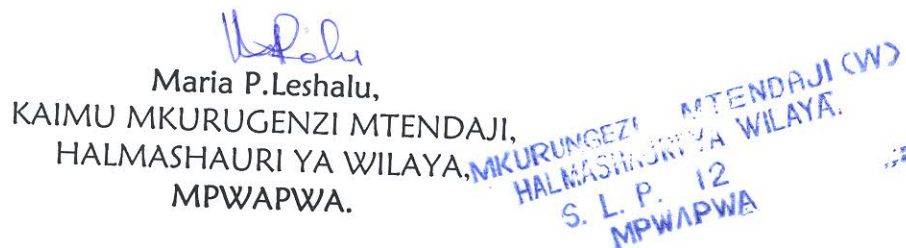 Maria P.Leshalu,
KAIMU MKURUGENZI MTENDAJI,
HALMASHAURI YA WILAYA,
MPWAPWA.
MKURUNGEZI MTENDAJI (W)
HALMASHAURI YA WILAYA.
S. L. P. 12
MPWAPWA